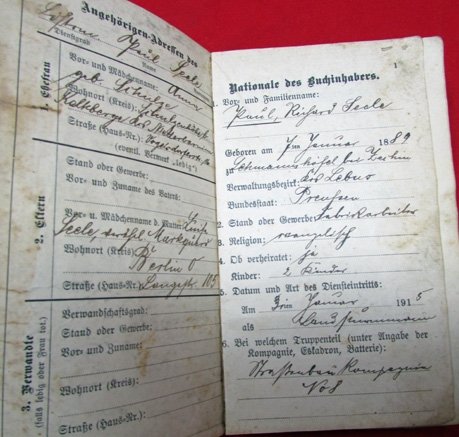 Angehörigen-Adressen des
Paul Seele
Dienstgrad Name
1. Ehefrau
Vor- und Mädchenname: Anna
geb. Schulze
Wohnort (Kreis):
Kalkberge Kr. Niederbarnim
Straße (Haus-Nr.)
(eventl. Vermerk „ledig")
2. Eltern
Stand oder Gewerbe:
Vor- und Zuname des Vaters:
Vor- u. Mädchenname d. Mutter: Luise
Seele,
Wohnort (Kreis)
Berlin O
Straße (Haus-Nr.) Langestr. 105
3. Verwandte
(falls ledig oder Frau tot)
Verwandtschaftsgrad:
Stand oder Gewerbe:
Vor- und Zuname:
Wohnort (Kreis):
Straße (Haus-Nr.):
1
Nationale des Buchinhabers.
1. Vor- und Familienname:
Paul, Richard Seele
Geboren am 7ten Januar 1889
zu bei
Verwaltungsbezirk: Krs Lebus
Bundesstaat: Preußen
2. Stand oder Gewerbe: Fabrikarbeiter
3. Religion: evanglisch
4. Ob verheiratet: ja
Kinder: 2 Kinder
5. Datum und Art des Diensteintritts:
Am 3ten Januar 1915
als Landsturmmann
6. Bei welchem Truppenteil (unter Angabe der
Kompagnie, Eskadron, Batterie):
Straßenbau Kompagnie
No 8